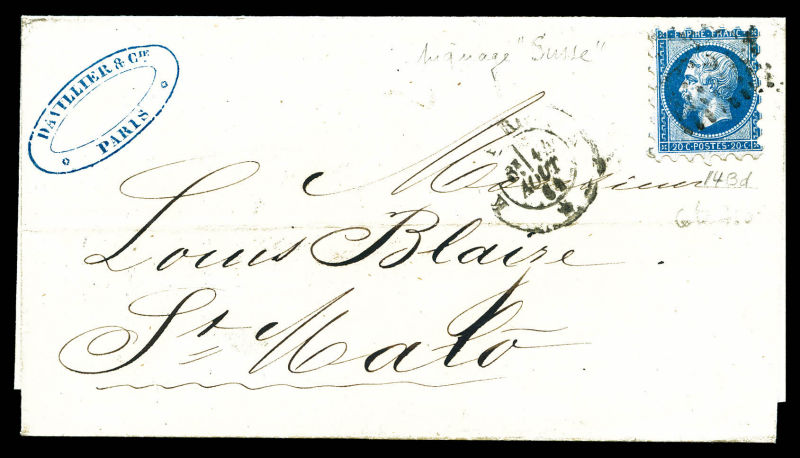 DAVILLIER & CIE
PARIS
"Susse"
EMPIRE FRANC
20 C·POSTES·20 C
14Bd
AOUT
Monsieur
Louis Blaize
St. Malo